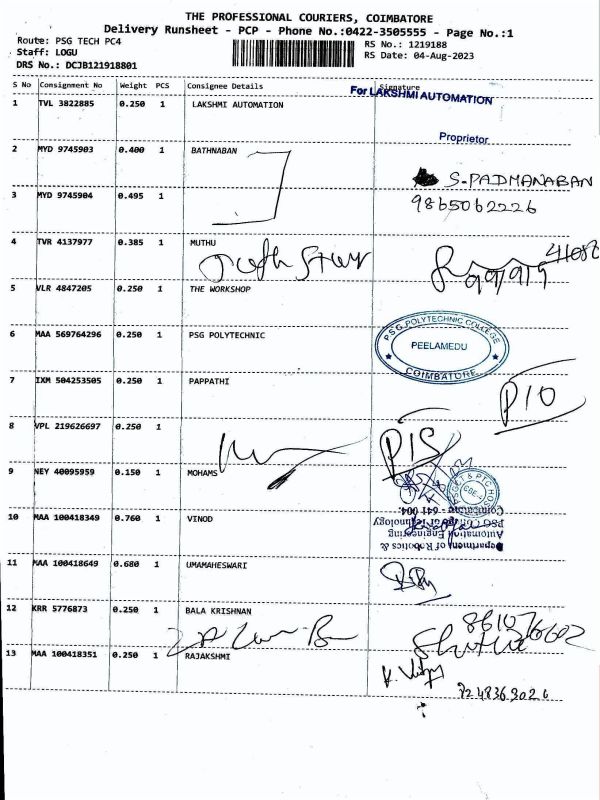 THE PROFESSIONAL COURIERS, COIMBATORE
Delivery Runsheet - PCP - Phone No.:0422-3505555 - Page No.:1
Route: PSG TECH PC4
RS No.: 1219188
Staff: LOGU
RS Date: 04-Aug-2023
DRS No.: DCJB121918801
S No Consignment No Weight PCS Consignee Details Signature
1 TVL 3822885 0.250 1 LAKSHMI AUTOMATION
For LAKSHMI AUTOMATION
Proprietor
2 MYD 9745903 0.400 1 BATHNABAN
S.PADMANABAN
3 MYD 9745904 0.495 1
9865062226
4 TVR 4137977 0.385 1 MUTHU
5 VLR 4847205 0.250 1 THE WORKSHOP
6 MAA 569764296 0.250 1 PSG POLYTECHNIC
PSG POLYTECHNIC COLLEGE
PEELAMEDU
COIMBATORE
7 IXM 504253505 0.250 1 PAPPATHI
P10
8 VPL 219626697 0.250 1
P15
9 NEY 40095959 0.150 1 MOHAMS
10 MAA 100418349 0.760 1 VINOD
Department of Robotics &
Automation Engineering
PSG College of Technology
Coimbatore - 641 004.
11 MAA 100418649 0.680 1 UMAMAHESWARI
12 KRR 5776873 0.250 1 BALA KRISHNAN
13 MAA 100418351 0.250 1 RAJAKSHMI